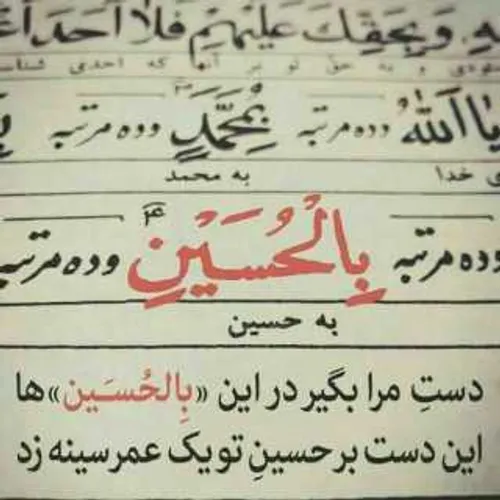 وَبِحَقِّكَ عَلَيْهِمْ فَلاٰ أَحَدَ
و به حق تو بر آنها که احدی
يٰا اَللّٰهُ وده مرتبه بِمُحَمَّدٍ وده مرتبه
خدا به محمد
وده مرتبه بِالْحُسَيْنِ وده مرتبه
به حسین
دستِ مرا بگیر در این «بِالحُسَین»ها
این دست بر حسینِ تو یک عمر سینه زد